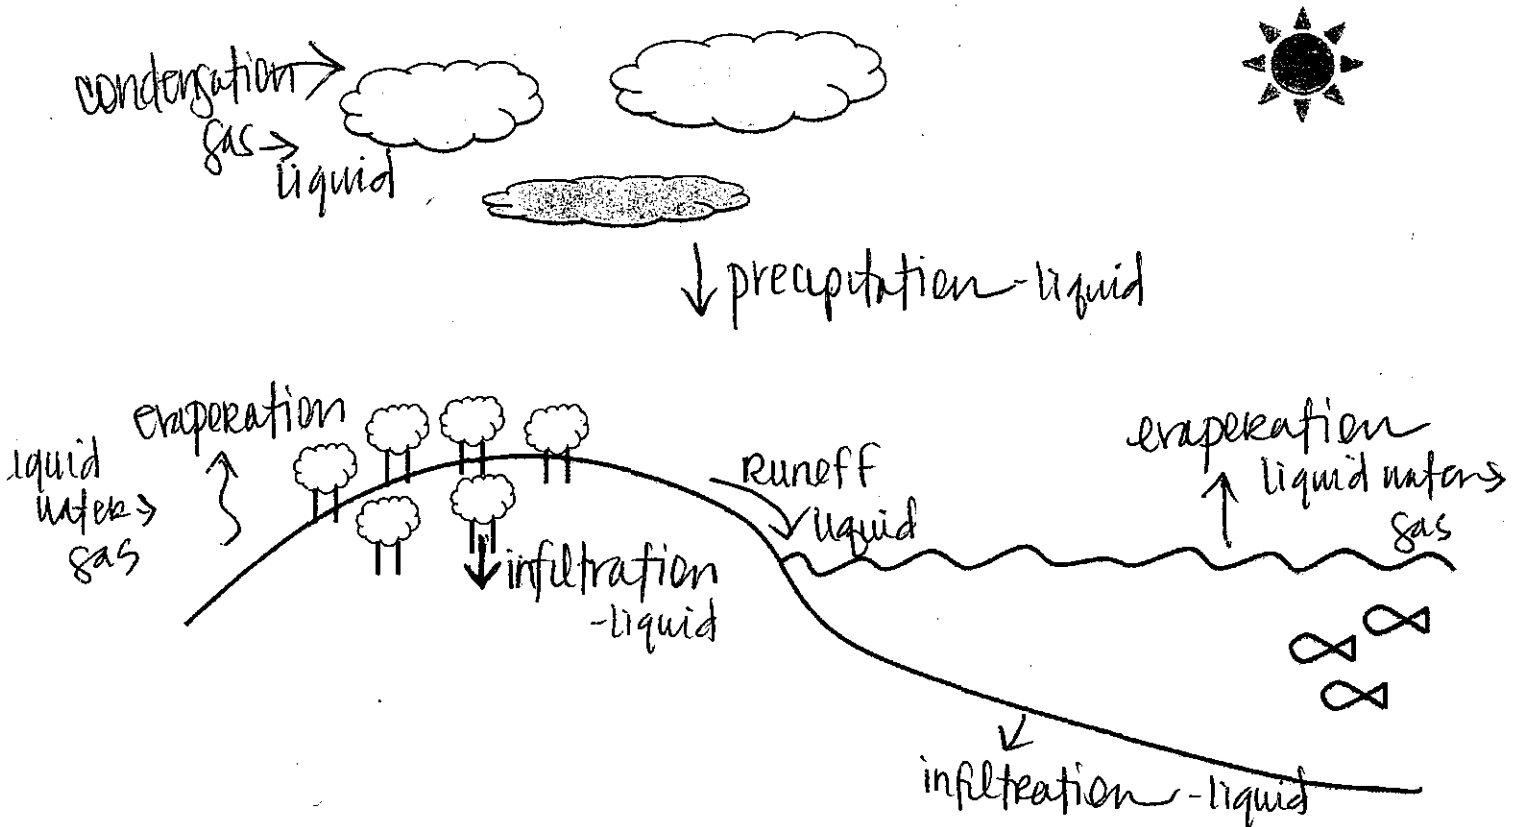 condensation →
gas →
liquid
↓ precipitation - liquid
evaporation
liquid
water →
gas
Runoff
liquid
infiltration
- liquid
evaporation
liquid water →
gas
infiltration - liquid